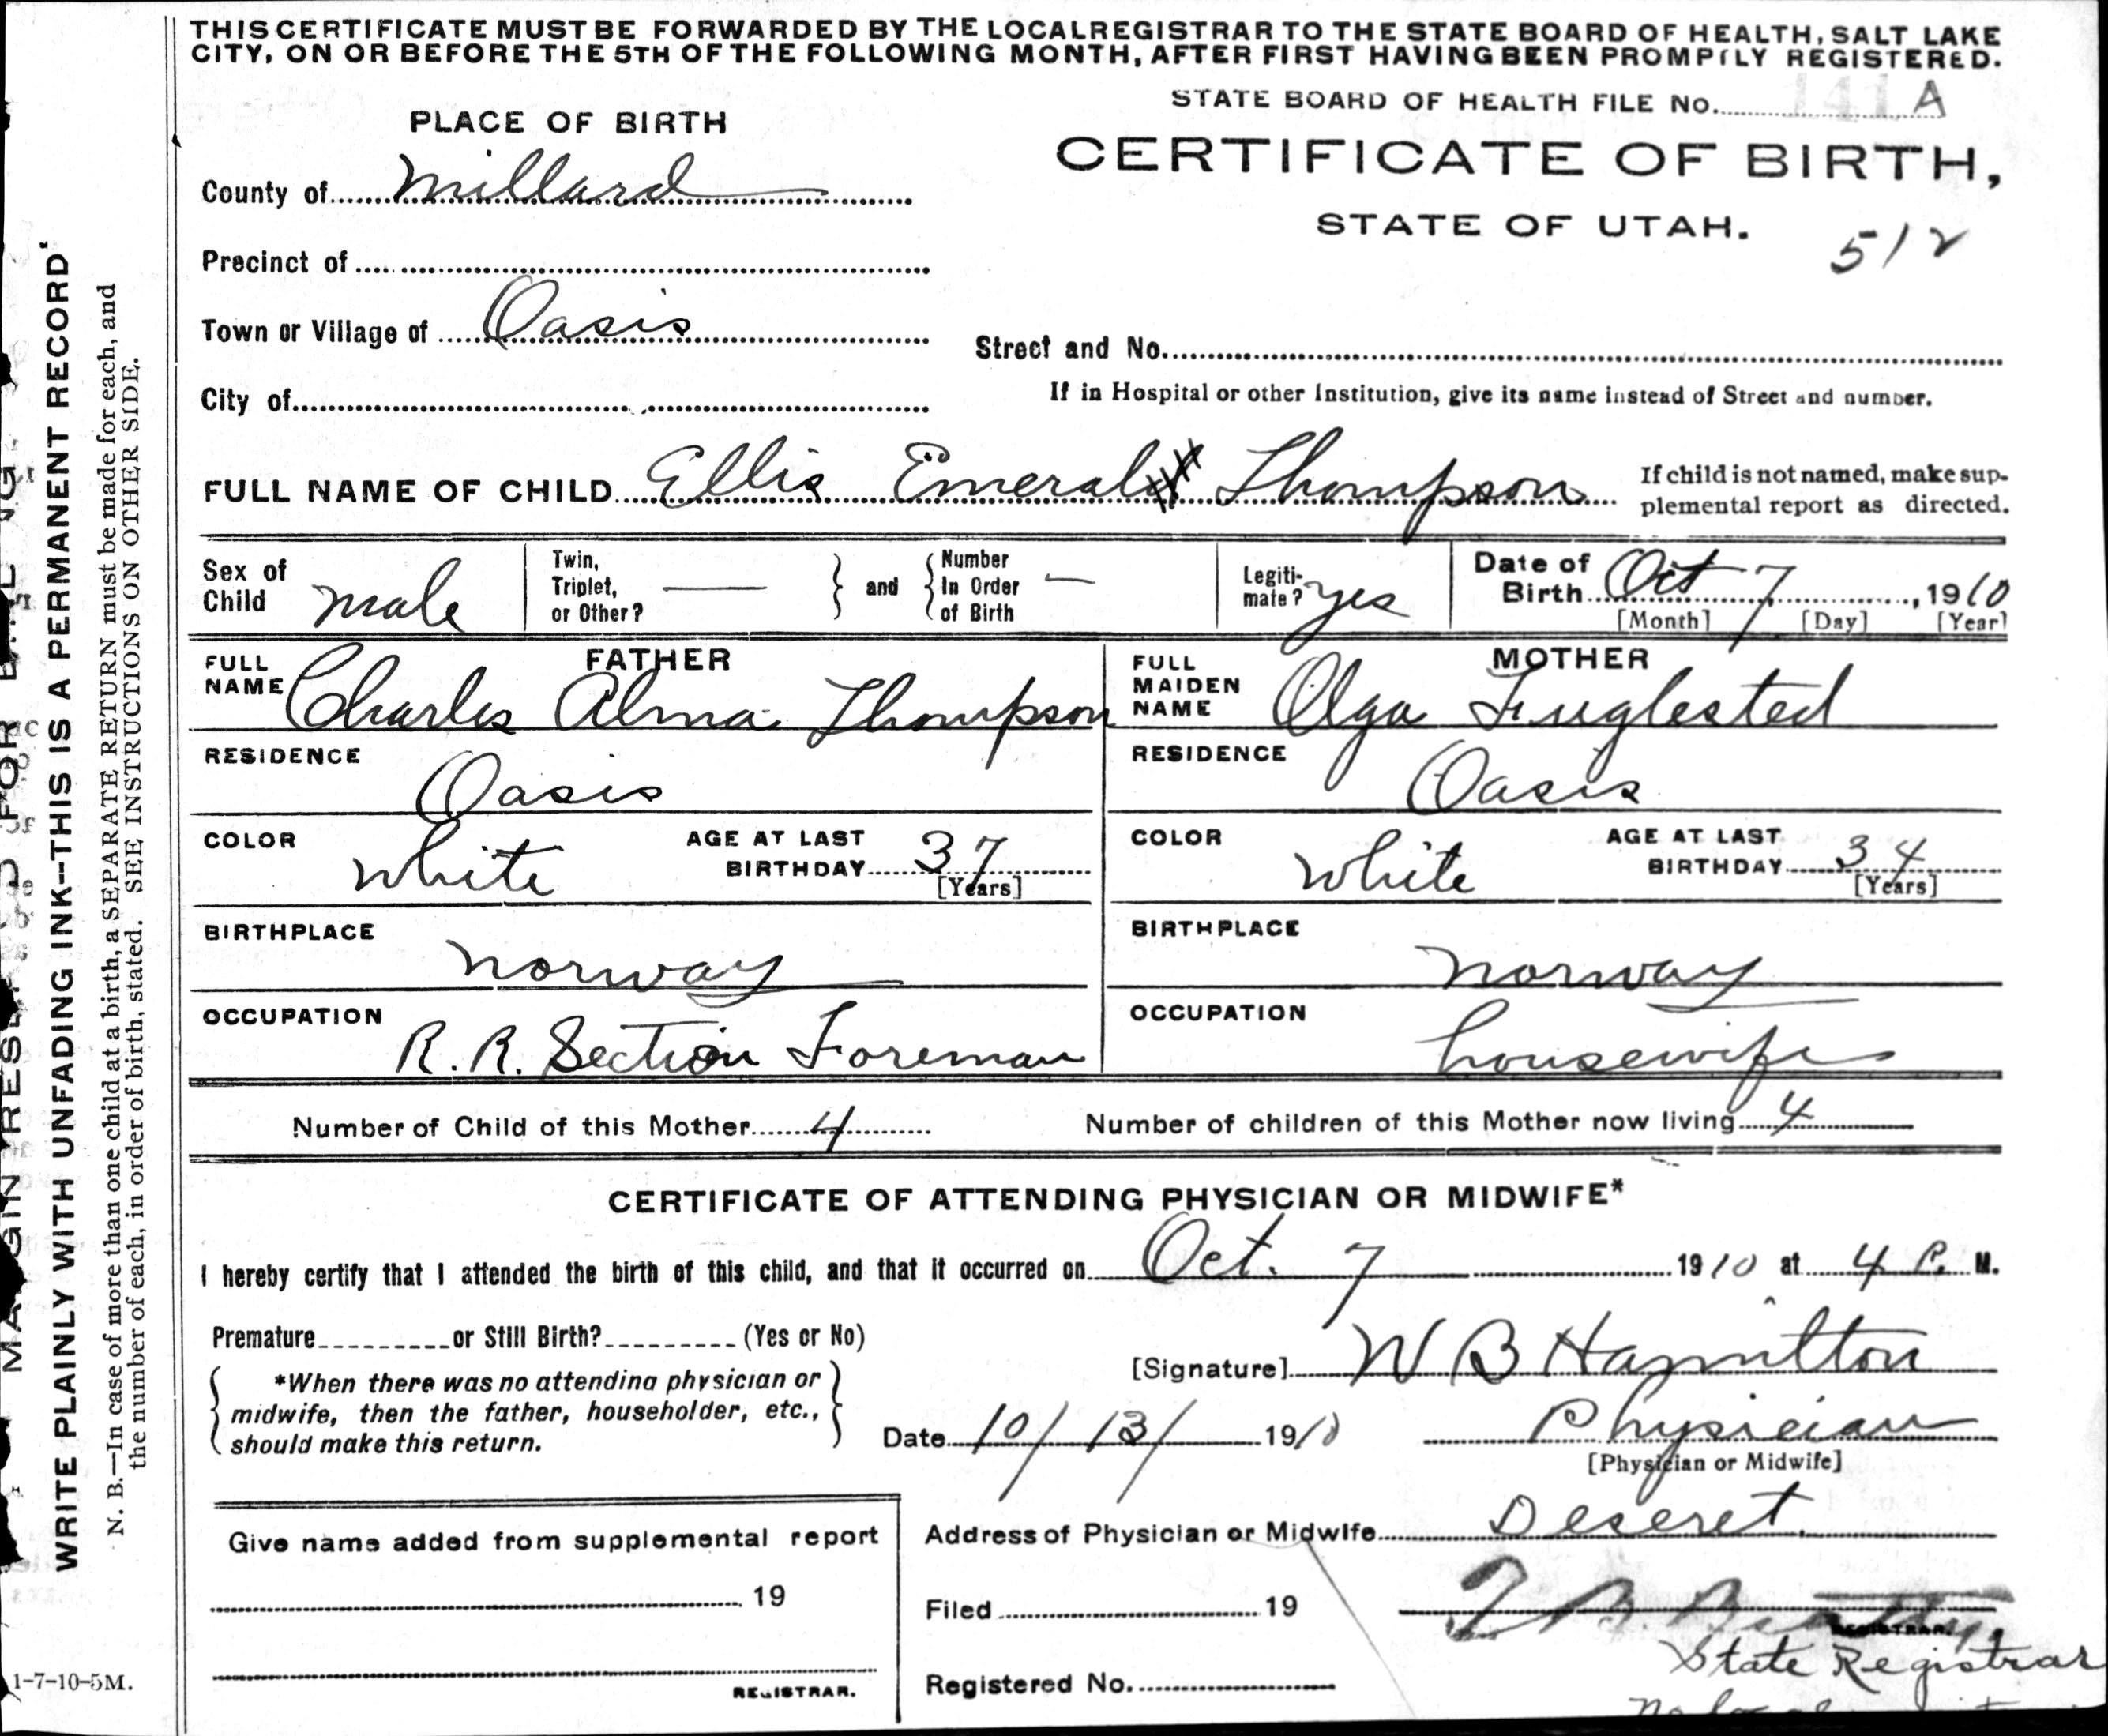 THIS CERTIFICATE MUST BE FORWARDED BY THE LOCAL REGISTRAR TO THE STATE BOARD OF HEALTH, SALT LAKE
CITY, ON OR BEFORE THE 5TH OF THE FOLLOWING MONTH, AFTER FIRST HAVING BEEN PROMPTLY REGISTERED.
STATE BOARD OF HEALTH FILE No. 141 A
PLACE OF BIRTH
CERTIFICATE OF BIRTH,
County of Millard
STATE OF UTAH.
512
Precinct of
Town or Village of Oasis
Street and No.
City of
If in Hospital or other Institution, give its name instead of Street and number.
FULL NAME OF CHILD Ellis Emerald Thompson
If child is not named, make sup-
plemental report as directed.
Sex of Child male
Twin, Triplet, or Other? —
and
Number In Order of Birth —
Legiti-
mate? yes
Date of Birth Oct 7, 1910
[Month] [Day] [Year]
FATHER
FULL NAME Charles Alma Thompson
MOTHER
FULL MAIDEN NAME Olga Fuglested
RESIDENCE Oasis
RESIDENCE Oasis
COLOR white
AGE AT LAST BIRTHDAY 37
[Years]
COLOR white
AGE AT LAST BIRTHDAY 34
[Years]
BIRTHPLACE Norway
BIRTHPLACE Norway
OCCUPATION R. R. Section Foreman
OCCUPATION housewife
Number of Child of this Mother 4
Number of children of this Mother now living 4
CERTIFICATE OF ATTENDING PHYSICIAN OR MIDWIFE*
I hereby certify that I attended the birth of this child, and that it occurred on Oct. 7 1910 at 4 P. M.
Premature or Still Birth? (Yes or No)
*When there was no attending physician or
midwife, then the father, householder, etc.,
should make this return.
[Signature] W B Hamilton
Date 10/13/ 1910
Physician
[Physician or Midwife]
Give name added from supplemental report
19
REGISTRAR.
Address of Physician or Midwife Deseret.
Filed 19
T. B. Beatty
REGISTRAR.
State Registrar
Registered No.
No local
WRITE PLAINLY WITH UNFADING INK--THIS IS A PERMANENT RECORD
N. B.—In case of more than one child at a birth, a SEPARATE RETURN must be made for each, and
the number of each, in order of birth, stated. SEE INSTRUCTIONS ON OTHER SIDE.
1-7-10-5M.